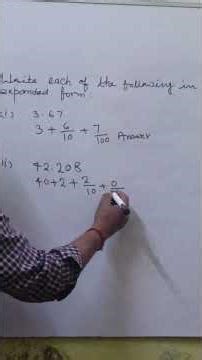 Write each of the following in
expanded form:
i) 3.67
3 + 6/10 + 7/100 Answer
ii) 42.208
40+2+ 2/10 + 0/